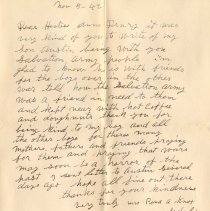 Nov 8-42
Dear Hostess Anne Drury it was
very kind of you to write of my
Son Austin being with you
Salvation army people I'm
glad to know he is with friends
for the boys over in the other
war told how the Salvation army
was a friend in need to them
and kept near with hot Coffee
and doughnuts thank you for
being kind to my boy and all
the other boys for there many
mother fathers and friends praying
for them and praying that
may soon be a horror of the
past I sent letter to Austin several
days ago hope all fine out there
thanks for your kindness
Very Truly Mrs Rosa A